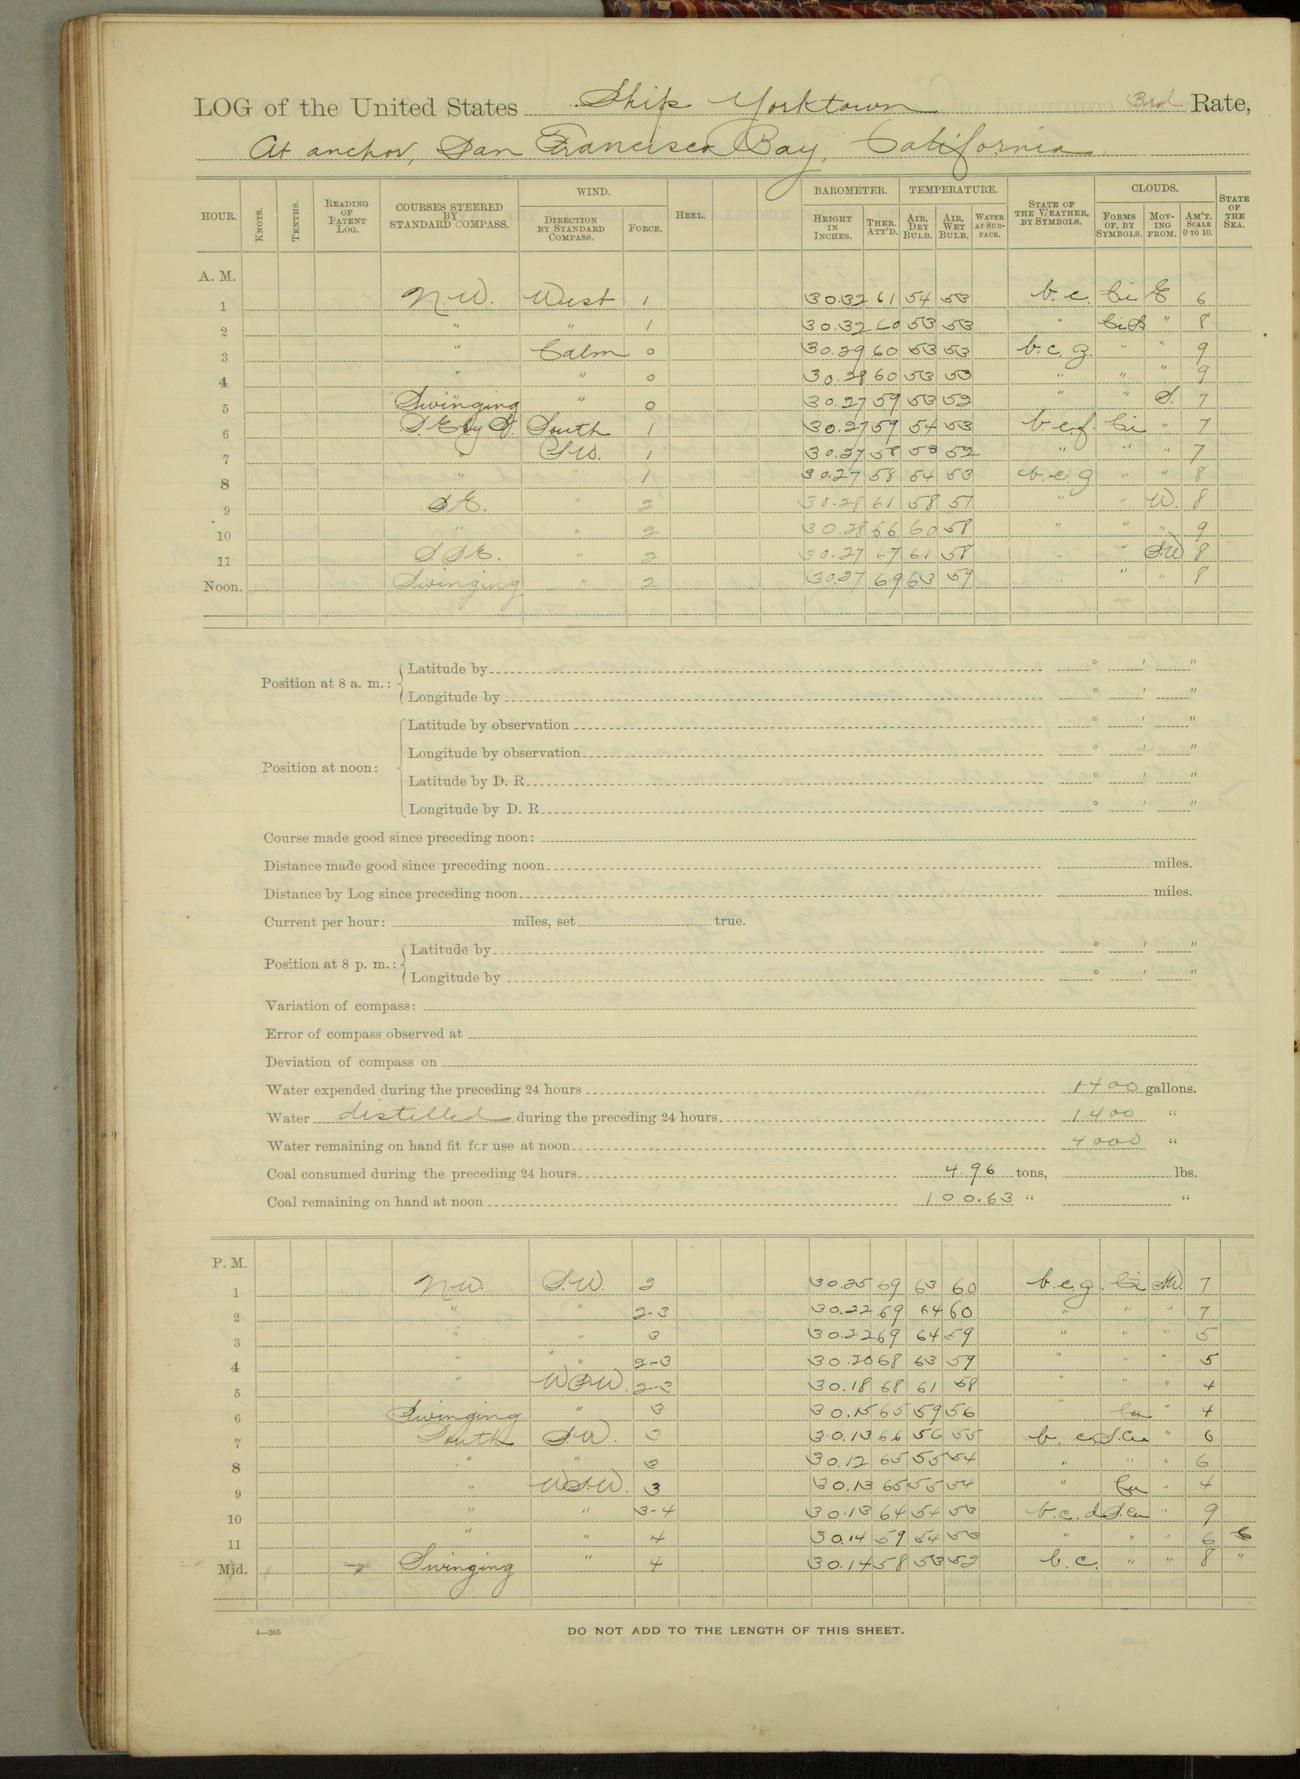 LOG of the United States Ship Yorktown 3rd Rate,
At anchor, San Francisco Bay, California
HOUR. KNOTS. TENTHS. READING OF PATENT LOG. COURSES STEERED BY STANDARD COMPASS. WIND. DIRECTION BY STANDARD COMPASS. FORCE. HEEL. BAROMETER. HEIGHT IN INCHES. THER. ATT'D. TEMPERATURE. AIR, DRY BULB. AIR, WET BULB. WATER AT SURFACE. STATE OF THE WEATHER, BY SYMBOLS. CLOUDS. FORMS OF, BY SYMBOLS. MOVING FROM. AM'T. SCALE 0 TO 10. STATE OF THE SEA.
A. M.
1 N.W. West 1 30.32 61 54 53 b.c. Ci E 6
2 " " 1 30.32 60 53 53 " Ci S " 8
3 " Calm 0 30.29 60 53 53 b.c.g. " " 9
4 " " 0 30.28 60 53 53 " " " 9
5 Swinging " 0 30.27 59 53 52 " " S. 7
6 S.E. by S. South 1 30.27 59 54 53 b.c.f. Ci " 7
7 " S.W. 1 30.27 58 53 52 " " " 7
8 " 1 30.27 58 54 53 b.c.g " " 8
9 S.E. " 2 30.28 61 58 57 " " W. 8
10 " " 2 30.28 66 60 58 " " " 9
11 S S E. " 2 30.27 67 61 58 " " S.W 8
Noon. Swinging " 2 30.27 69 63 59 " " " 8
Position at 8 a. m.: Latitude by ° ' "
Longitude by ° ' "
Position at noon: Latitude by observation ° ' "
Longitude by observation ° ' "
Latitude by D. R. ° ' "
Longitude by D. R. ° ' "
Course made good since preceding noon:
Distance made good since preceding noon miles.
Distance by Log since preceding noon miles.
Current per hour: miles, set true.
Position at 8 p. m.: Latitude by ° ' "
Longitude by ° ' "
Variation of compass:
Error of compass observed at
Deviation of compass on
Water expended during the preceding 24 hours 1400 gallons.
Water distilled during the preceding 24 hours 1400 "
Water remaining on hand fit for use at noon 4000 "
Coal consumed during the preceding 24 hours 4.96 tons, lbs.
Coal remaining on hand at noon 100.63 " "
P. M.
1 N.W. S.W. 2 30.25 69 63 60 b.c.g. Ci S.W. 7
2 " " 2-3 30.22 69 64 60 " " " 7
3 " " 3 30.22 69 64 59 " " " 5
4 " " 2-3 30.20 68 63 59 " " " 5
5 " W S W. 2-3 30.18 68 61 58 " " " 4
6 Swinging " 3 30.15 65 59 56 " Cu " 4
7 South S.W. 3 30.13 66 56 55 b.c. S.Cu " 6
8 " " 3 30.12 65 55 54 " " " 6
9 " W S.W. 3 30.13 65 55 54 " Cu " 4
10 " " 3-4 30.13 64 54 53 b.c.d. S.Cu " 9
11 " " 4 30.14 59 54 53 " " " 6
Mid. Swinging " 4 30.14 58 53 52 b.c. " " 8 "
4—265 DO NOT ADD TO THE LENGTH OF THIS SHEET.